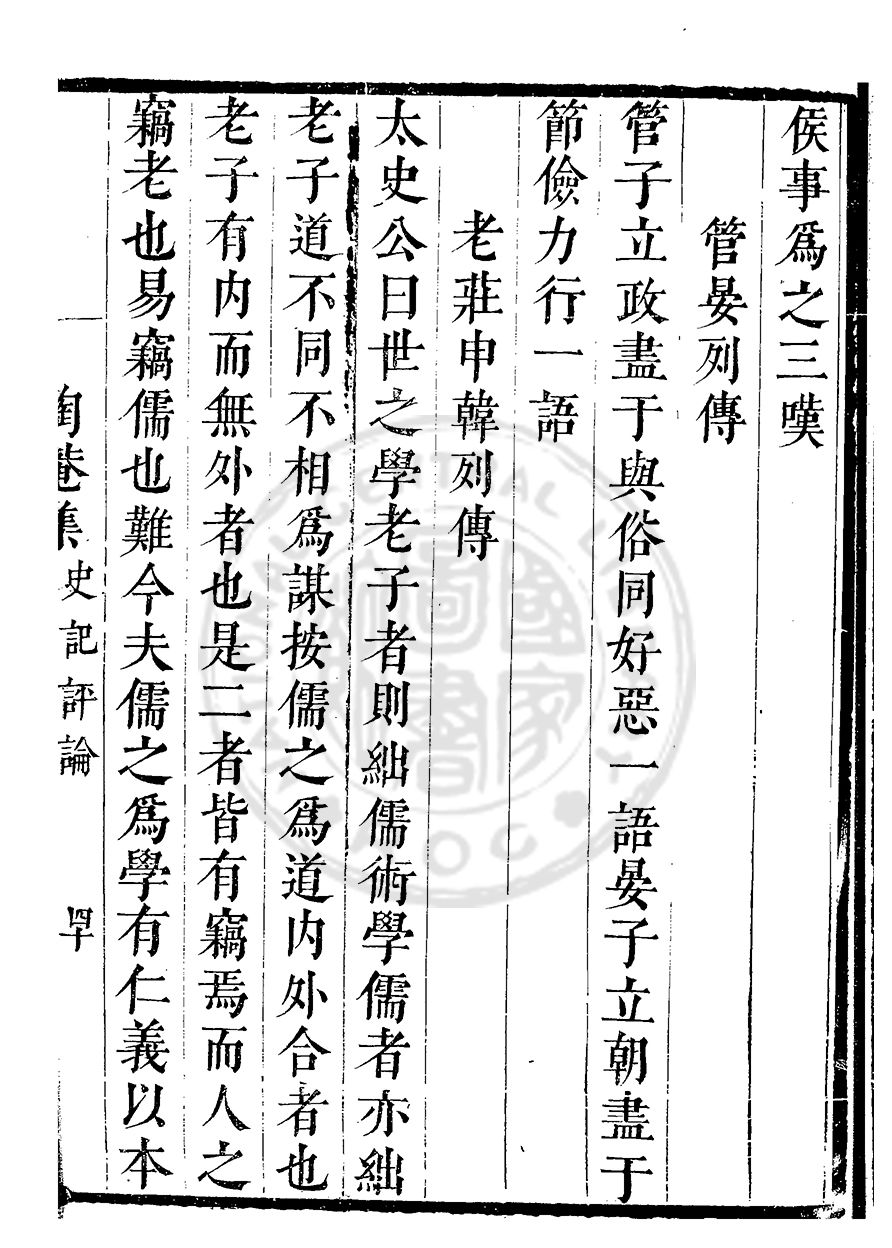 侯事爲之三嘆
管晏列傳
管子立政盡于與俗同好惡一語晏子立朝盡于
節儉力行一語
老莊申韓列傳
太史公曰世之學老子者則絀儒術學儒者亦絀
老子道不同不相爲謀按儒之爲道内外合者也
老子有内而無外者也是二者皆有竊焉而人之
竊老也易竊儒也難今夫儒之爲學有仁義以本
陶菴集 史記評論 四十